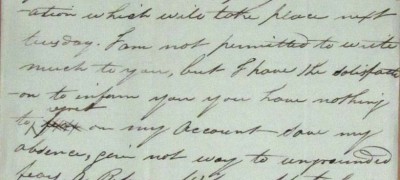 -ation which will take place next
tuesday. I am not permitted to write
much to you, but I have the satisfacti
-on to inform you you have nothing
to regret on my Account save my
absence, give not way to ungrounded
fears